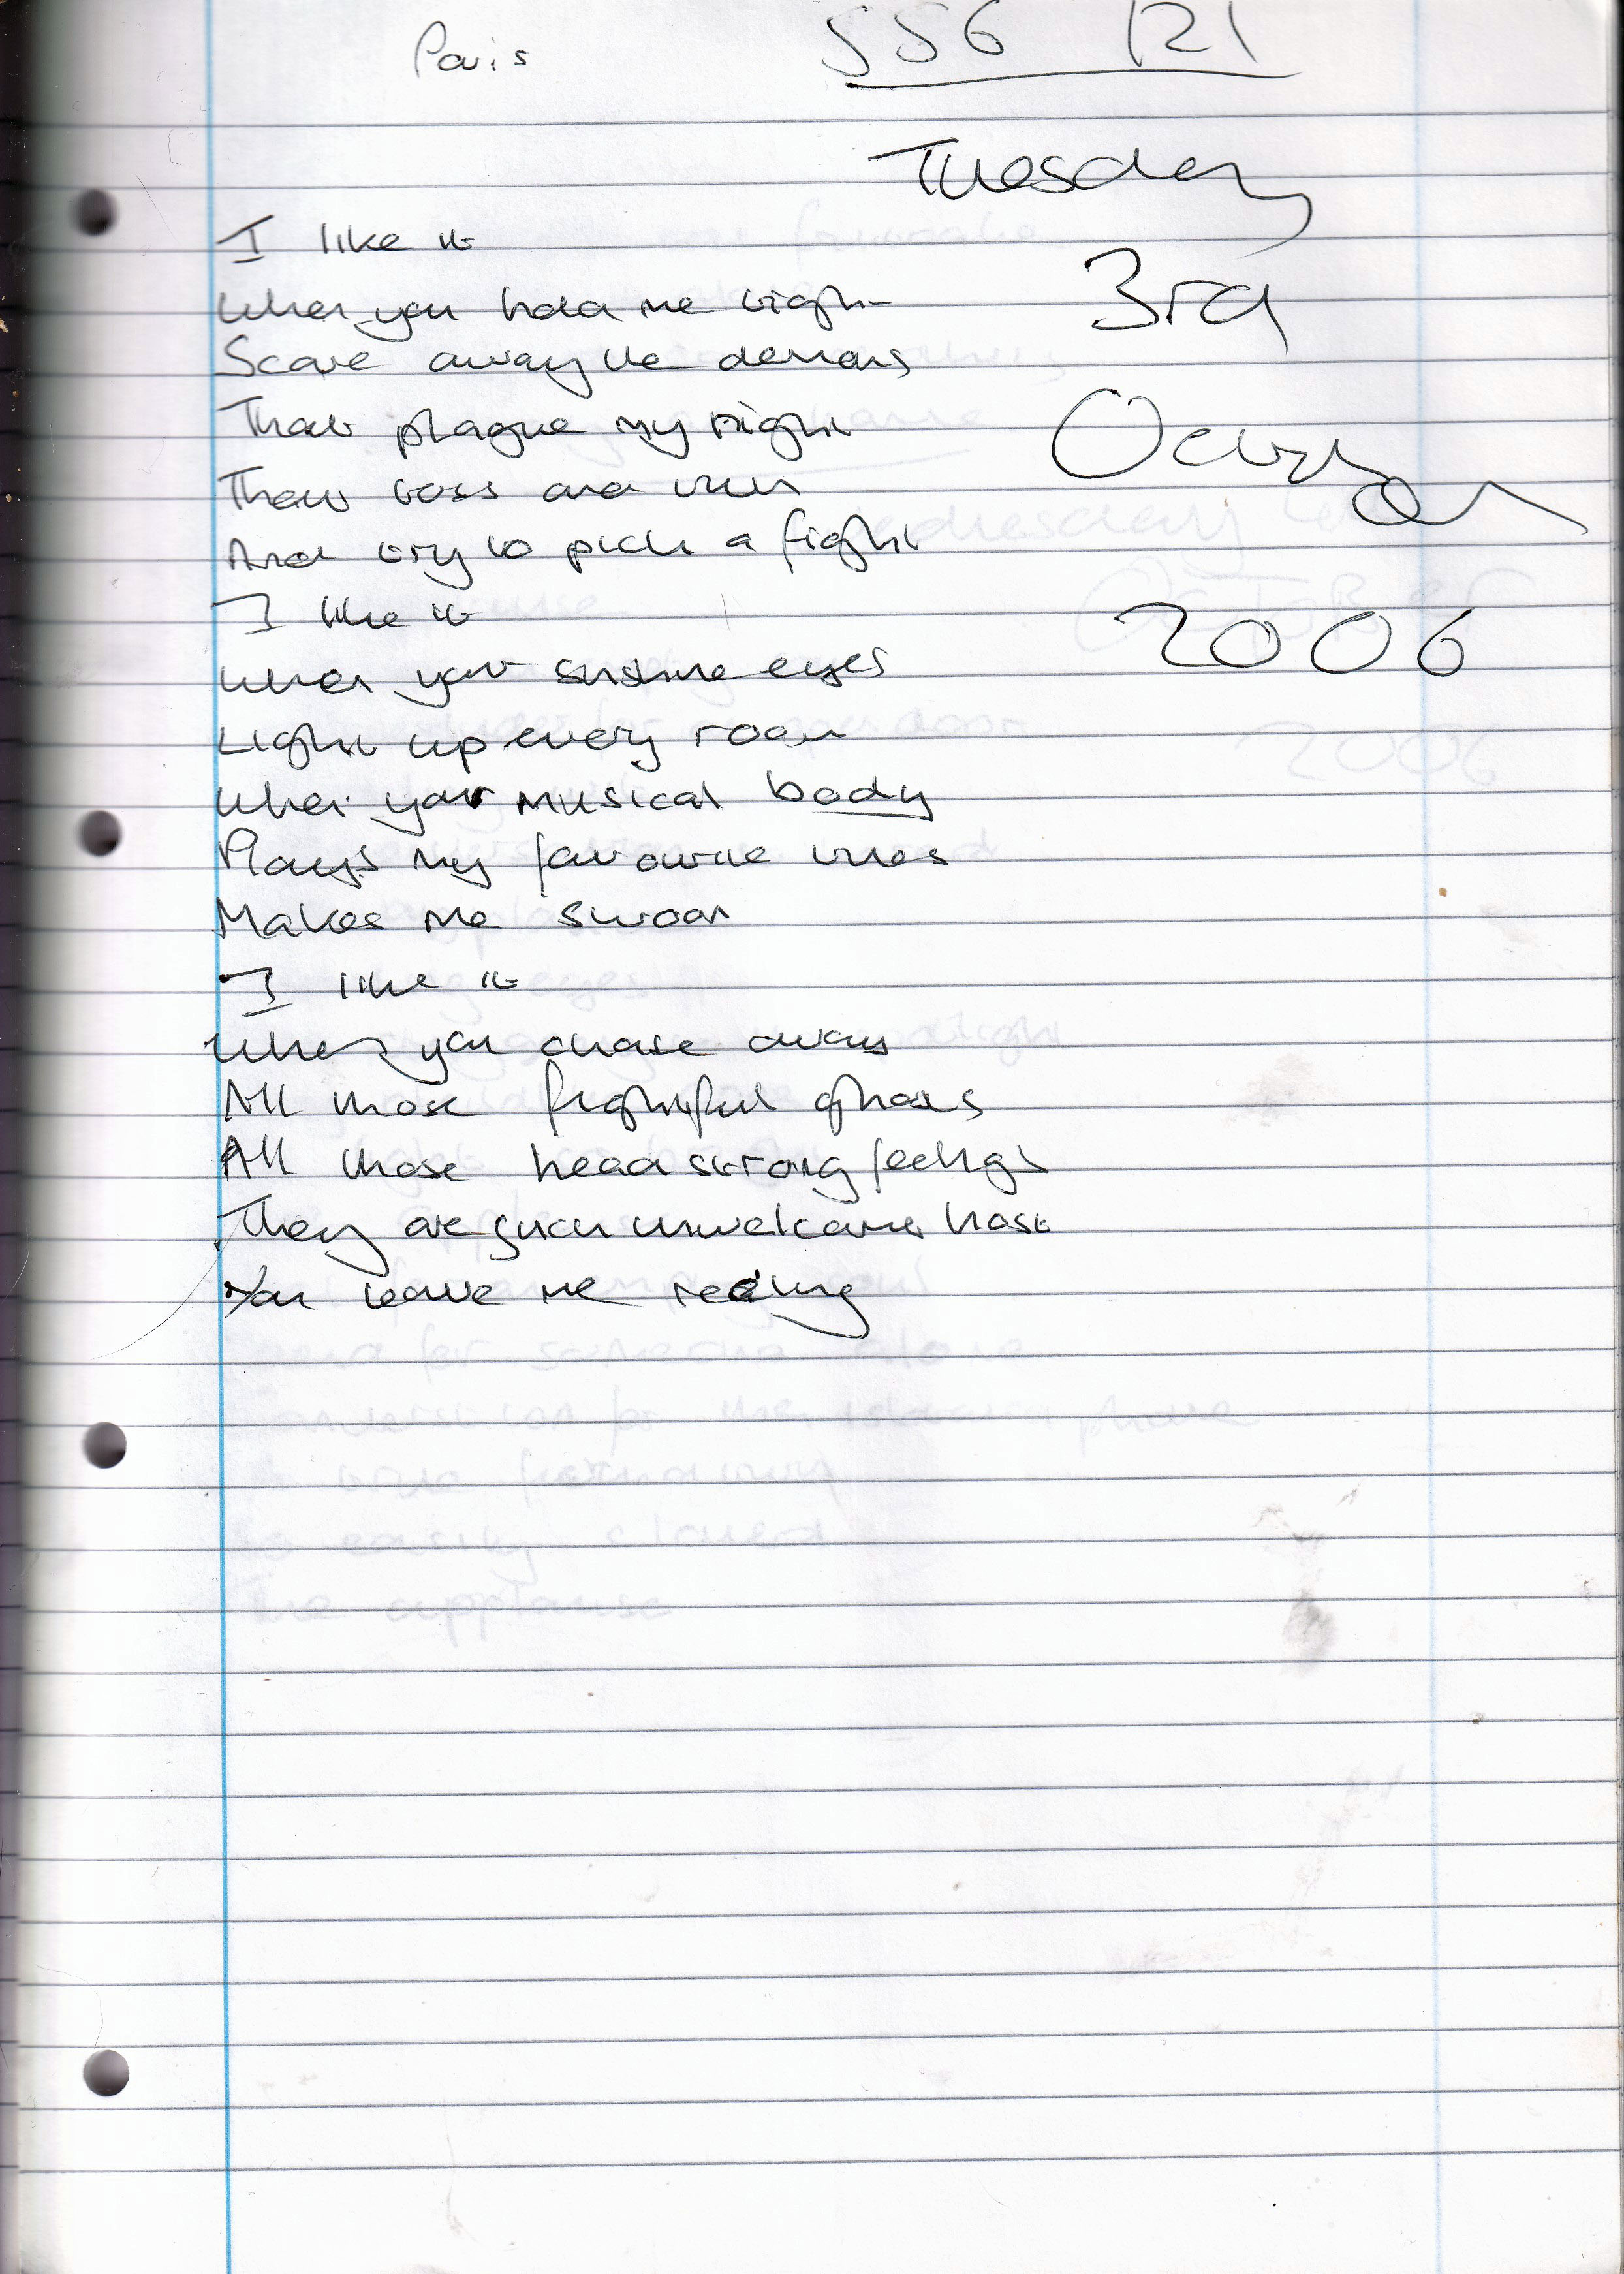 Paris
556 121
Tuesday
3rd
October
2006
I like it
When you hold me tight
Scare away the demons
That plague my night
That toss and turn
And try to pick a fight
I like it
When your sunshine eyes
Light up every room
When your musical body
Plays my favourite tunes
Makes me swoon
I like it
When you chase away
All those frightful ghosts
All those headstrong feelings
They are such unwelcome hosts
You leave me reeling